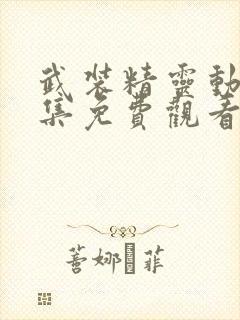 武裝精靈動
集免費觀看
蕾娜·菲